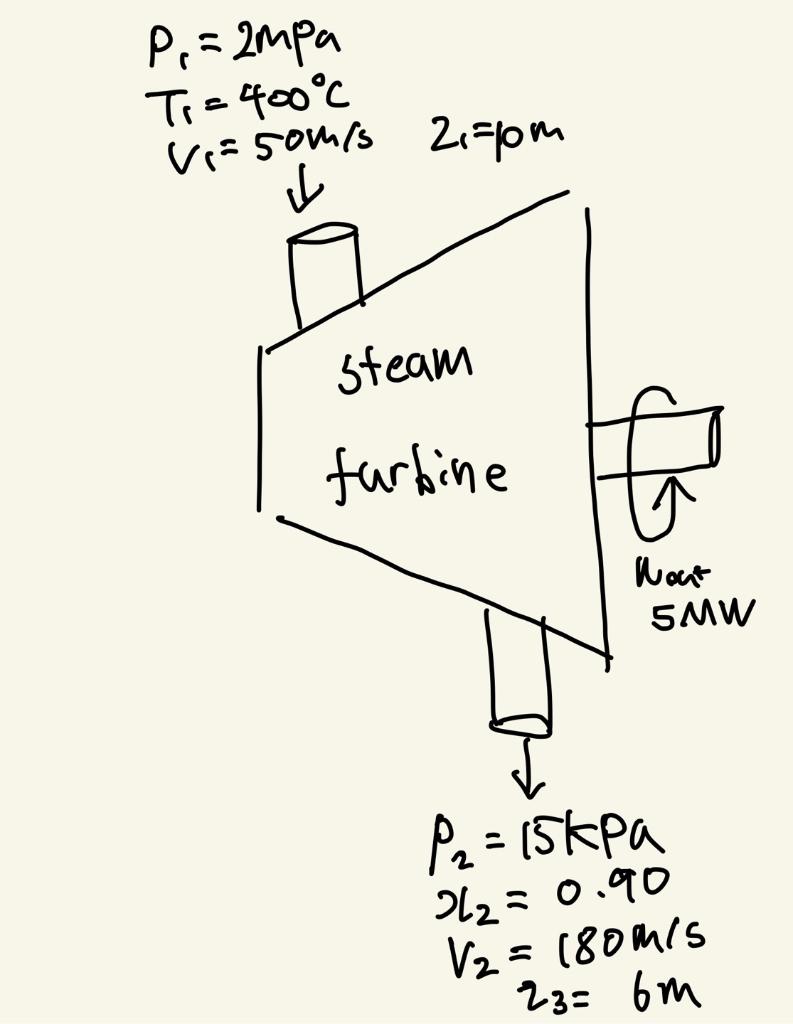 P₁ = 2MPa
T₁ = 400°C
V₁ = 50m/s
Z₁=10m
steam
turbine
Wout
5MW
P₂ = 15kPa
x₂ = 0.90
V₂ = 180m/s
z₃ = 6m